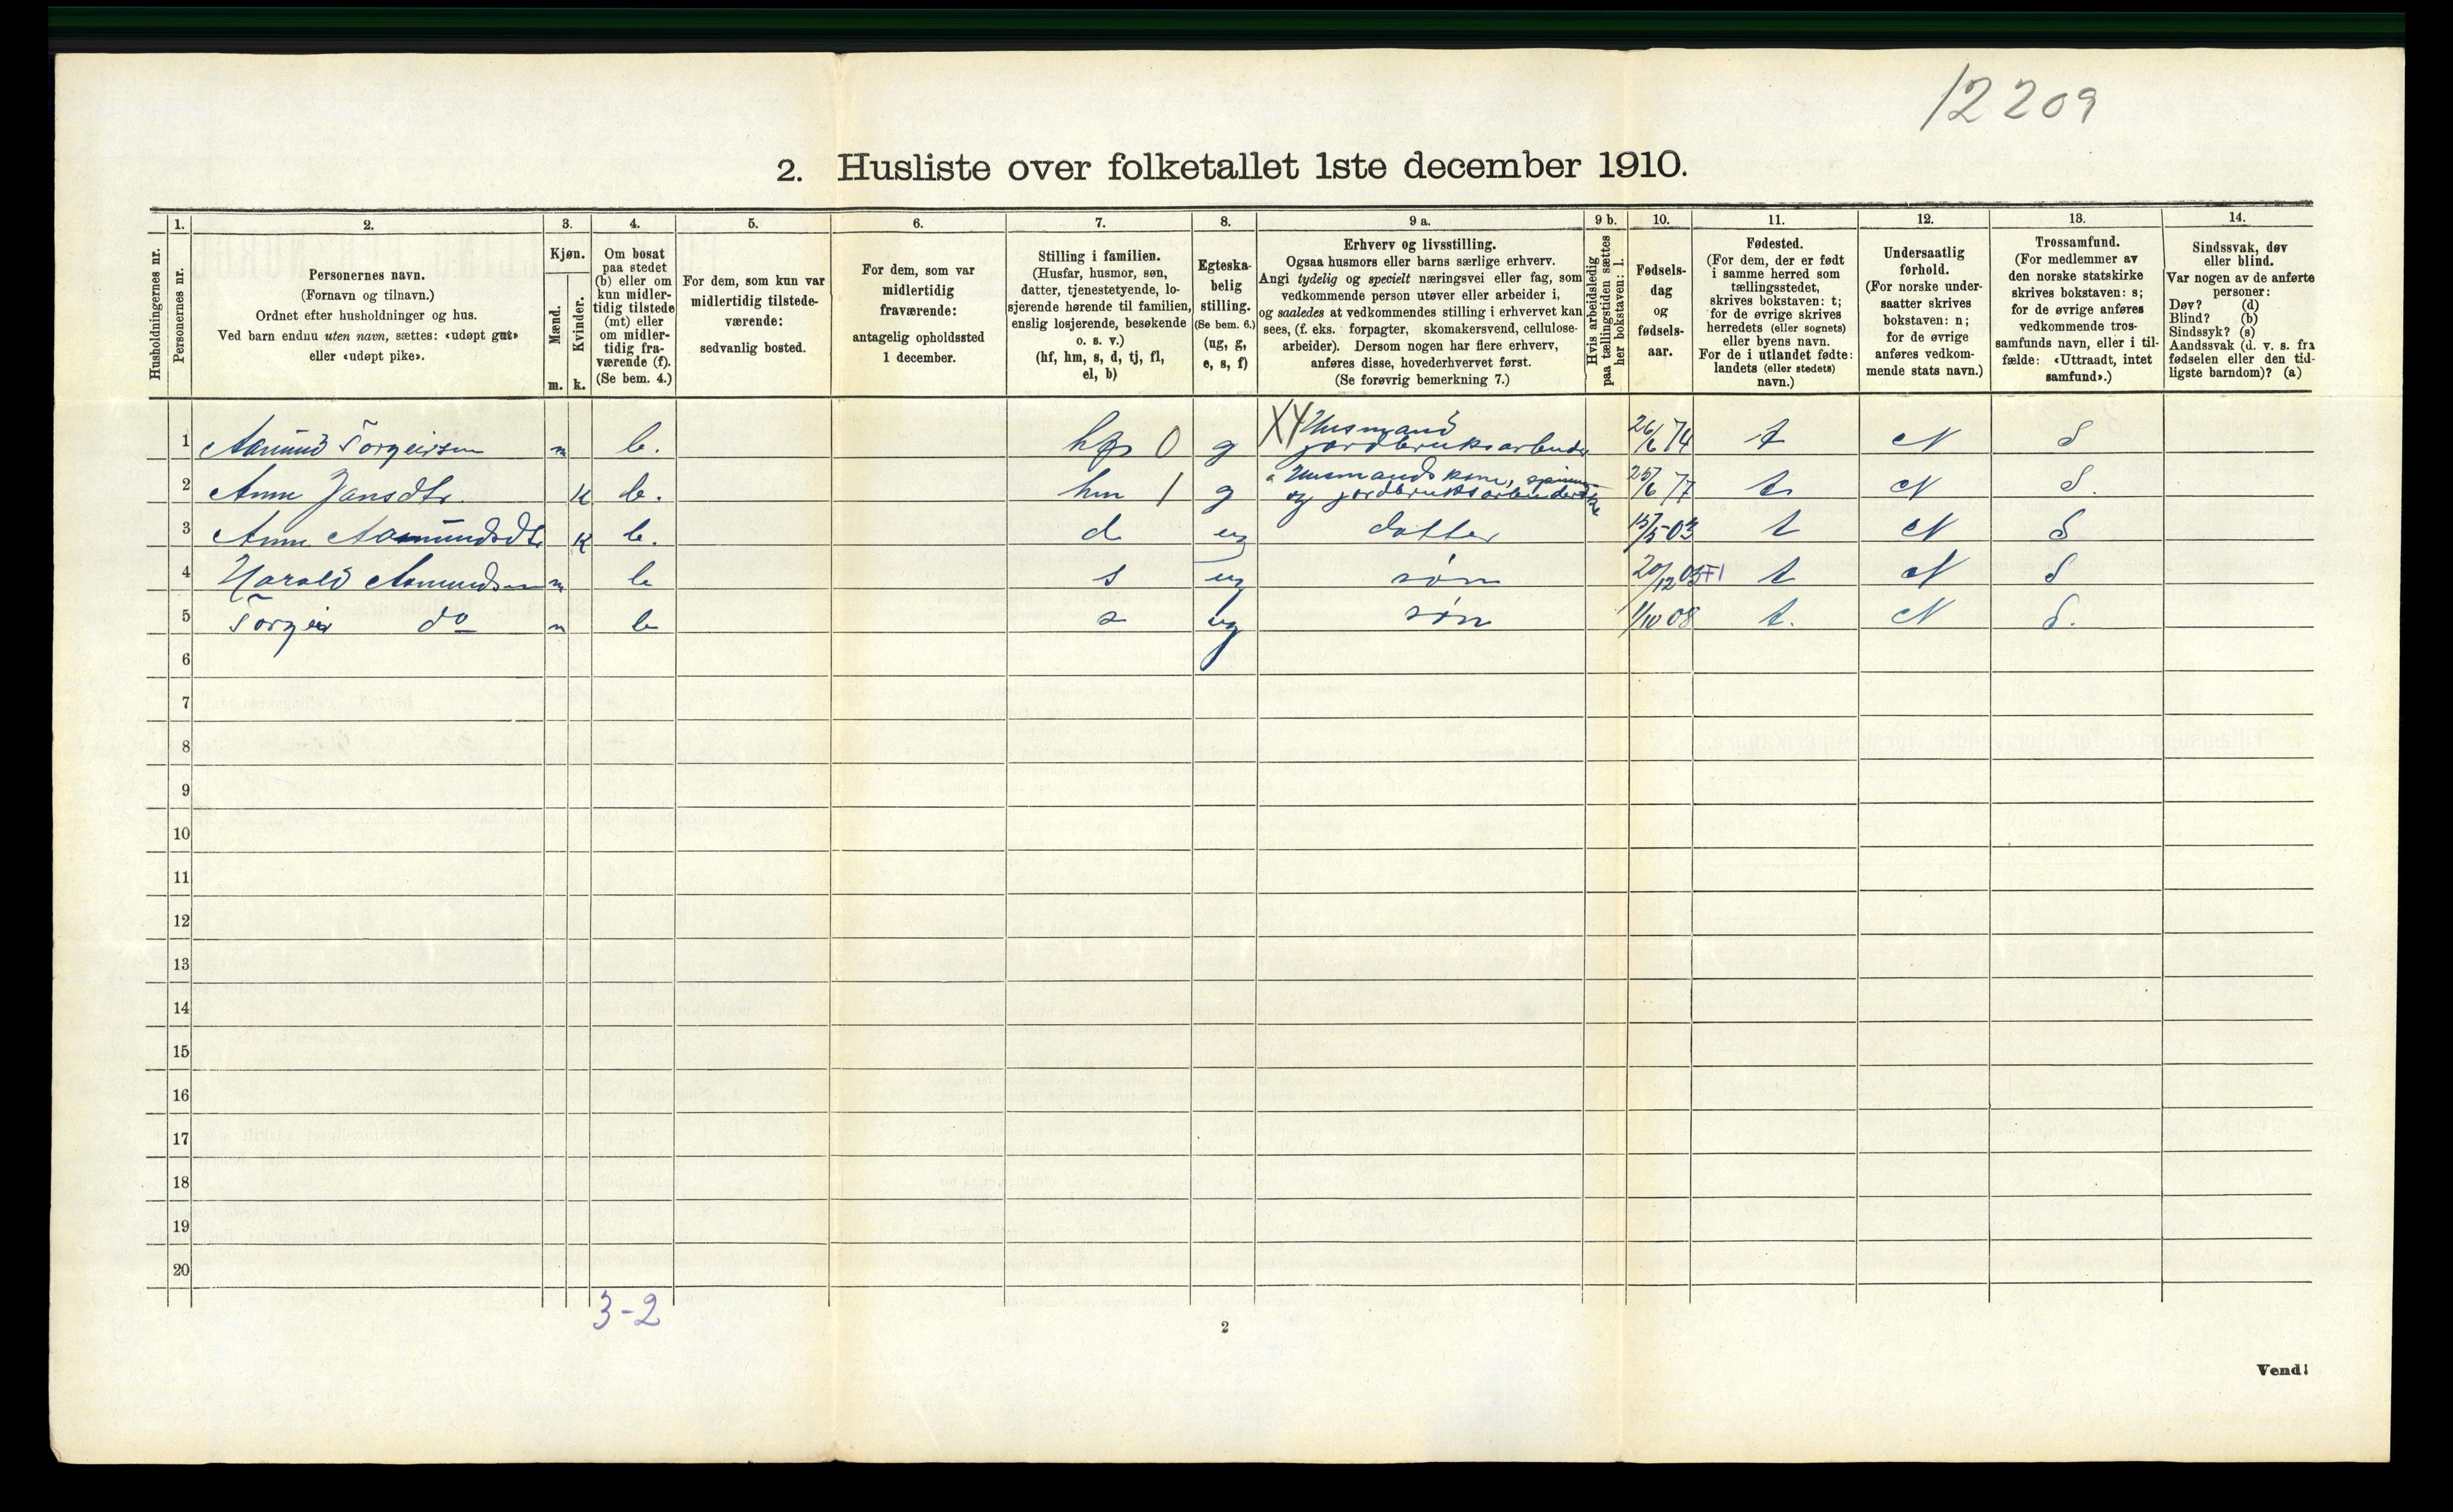 12209
2. Husliste over folketallet 1ste december 1910.
Husholdningernes nr.
1.
Personernes nr.
2.
Personernes navn.
(Fornavn og tilnavn.)
Ordnet efter husholdninger og hus.
Ved barn endnu uten navn, sættes: «udøpt gut»
eller «udøpt pike».
3.
Kjøn.
Mænd.
m.
Kvinder.
k.
4.
Om bosat
paa stedet
(b) eller om
kun midler-
tidig tilstede
(mt) eller
om midler-
tidig fra-
værende (f).
(Se bem. 4.)
5.
For dem, som kun var
midlertidig tilstede-
værende:
sedvanlig bosted.
6.
For dem, som var
midlertidig
fraværende:
antagelig opholdssted
1 december.
7.
Stilling i familien.
(Husfar, husmor, søn,
datter, tjenestetyende, lo-
sjerende hørende til familien,
enslig losjerende, besøkende
o. s. v.)
(hf, hm, s, d, tj, fl,
el, b)
8.
Egteska-
belig
stilling.
(Se bem. 6.)
(ug, g,
e, s, f)
9 a.
Erhverv og livsstilling.
Ogsaa husmors eller barns særlige erhverv.
Angi tydelig og specielt næringsvei eller fag, som
vedkommende person utøver eller arbeider i,
og saaledes at vedkommendes stilling i erhvervet kan
sees, (f. eks. forpagter, skomakersvend, cellulose-
arbeider). Dersom nogen har flere erhverv,
anføres disse, hovederhvervet først.
(Se forøvrig bemerkning 7.)
9 b.
Hvis arbeidsledig
paa tællingstiden sættes
her bokstaven: l.
10.
Fødsels-
dag
og
fødsels-
aar.
11.
Fødested.
(For dem, der er født
i samme herred som
tællingsstedet,
skrives bokstaven: t;
for de øvrige skrives
herredets (eller sognets)
eller byens navn.
For de i utlandet fødte:
landets (eller stedets)
navn.)
12.
Undersaatlig
forhold.
(For norske under-
saatter skrives
bokstaven: n;
for de øvrige
anføres vedkom-
mende stats navn.)
13.
Trossamfund.
(For medlemmer av
den norske statskirke
skrives bokstaven: s;
for de øvrige anføres
vedkommende tros-
samfunds navn, eller i til-
fælde: «Uttraadt, intet
samfund».)
14.
Sindssvak, døv
eller blind.
Var nogen av de anførte
personer:
Døv? (d)
Blind? (b)
Sindssyk? (s)
Aandssvak (d. v. s. fra
fødselen eller den tid-
ligste barndom)? (a)
1 Aamund Torgeirsen m b. hf 0 g Husmand jordbruksarbeider 26/6 74 t N S
2 Anne Jansdtr. K b. hm 1 g Husmandskone, og jordbruksarbeiderske 25/6 77 t N S.
3 Anne Aamundsdtr K b. d ug datter 15/5-03 t N S
4 Harald Aamundsen m b s ug søn 20/12 05 t N S
5 Torgeir do m b s ug søn 1/10 08 t. N S.
6
7
8
9
10
11
12
13
14
15
16
17
18
19
20
3-2
2
Vend!